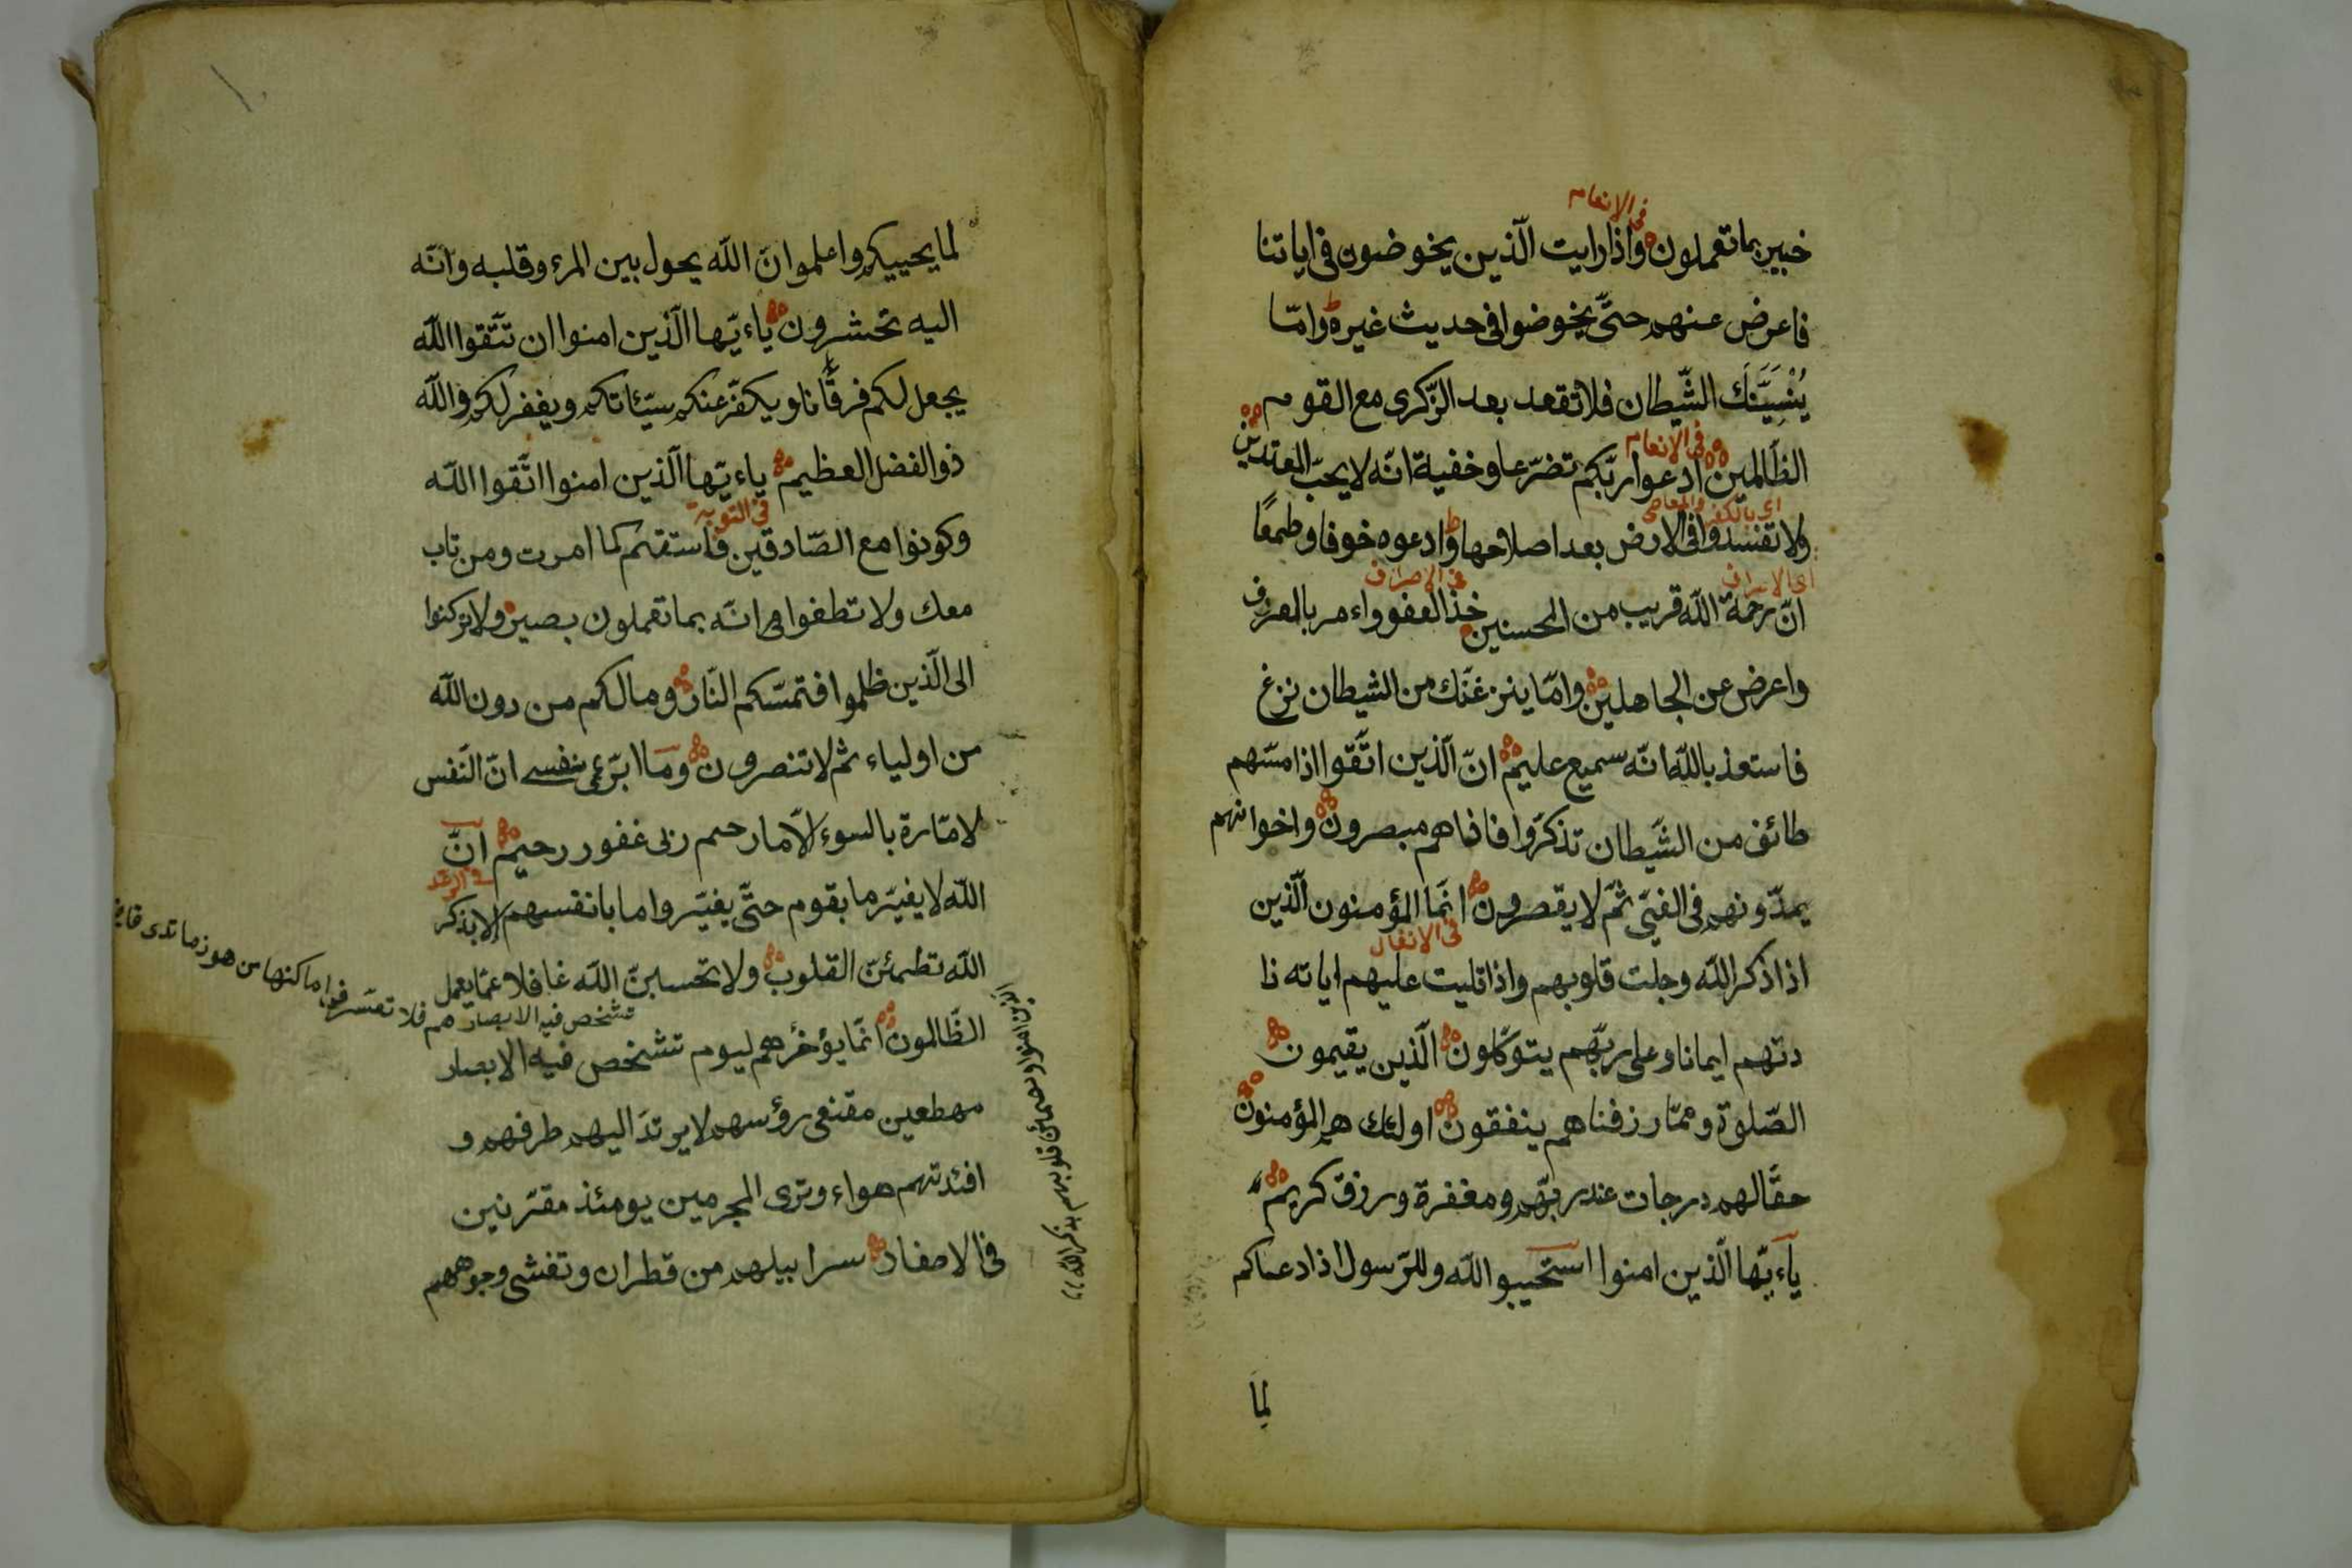 في الانعام
خبير بما تعملون واذا رايت الّذين يخوضون فى اياتنا
فاعرض عنهم حتّى يخوضوا فى حديث غيره وامّا
يُنْسِيَنَّكَ الشّيطان فلا تقعد بعد الذّكرى مع القوم
فى الانعام
الظّالمين ادعوا ربّكم تضرّعا وخفية انّه لا يحبّ المعتدين
اى بالكفر والمعاصى
ولا تفسدوا فى الارض بعد اصلاحها وادعوه خوفا وطمعًا
فى الاعراف
انّ رحمة اللّه قريب من المحسنين خذ العفو واءمر بالعرف
واعرض عن الجاهلين وامّا ينزغنّك من الشيطان نزغ
فاستعذ باللّه انّه سميع عليم انّ الّذين اتّقوا اذا مسّهم
طائف من الشّيطان تذكّروا فاذاهم مبصرون واخوانهم
يمدّونهم فى الغيّ ثمّ لا يقصرون انّما المؤمنون الّذين
فى الانفال
اذا ذكر اللّه وجلت قلوبهم واذا تليت عليهم اياته زا
دتهم ايمانا وعلى ربّهم يتوكّلون الّذين يقيمون
الصّلوة وممّا رزقناهم ينفقون اولئك هم المؤمنون
حقّا لهم درجات عند ربّهم ومغفرة ورزق كريم
ياءيّها الّذين امنوا استجيبوا للّه وللرّسول اذا دعاكم
لِمَا
لما يحييكم واعلموا انّ اللّه يحول بين المرء وقلبه وانّه
اليه تحشرون ياءيّها الّذين امنوا ان تتّقوا اللّه
يجعل لكم فرقانا ويكفّر عنكم سيّئاتكم ويغفر لكم واللّه
ذو الفضل العظيم ياءيّها الّذين امنوا اتّقوا اللّه
فى التوبة
وكونوا مع الصّادقين فاستقم كما امرت ومن تاب
معك ولا تطغوا انّه بما تعملون بصير ولا تركنوا
الى الّذين ظلموا فتمسّكم النّار وما لكم من دون اللّه
من اولياء ثم لا تنصرون وما ابرّئ نفسى انّ النّفس
لامّارة بالسوء الّا ما رحم ربّى غفور رحيم انّ
فى الرعد
اللّه لا يغيّر ما بقوم حتّى يغيّروا ما بانفسهم الا بذكر
اللّه تطمئنّ القلوب ولا تحسبنّ اللّه غافلا عمّا يعمل
تشخص فيه الابصار
الظّالمون انّما يؤخّرهم ليوم تشخص فيه الابصار
مهطعين مقنعى رؤسهم لا يرتدّ اليهم طرفهم و
افئدتهم هواء وترى المجرمين يومئذ مقرّنين
فى الاصفاد سرابيلهم من قطران وتغشى وجوههم
الذين امنوا وتطمئن قلوبهم بذكر اللّه